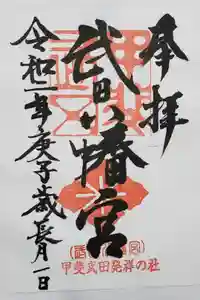 奉拝
武田八幡宮
甲斐武田発祥の社
令和二年庚子歳長月一日